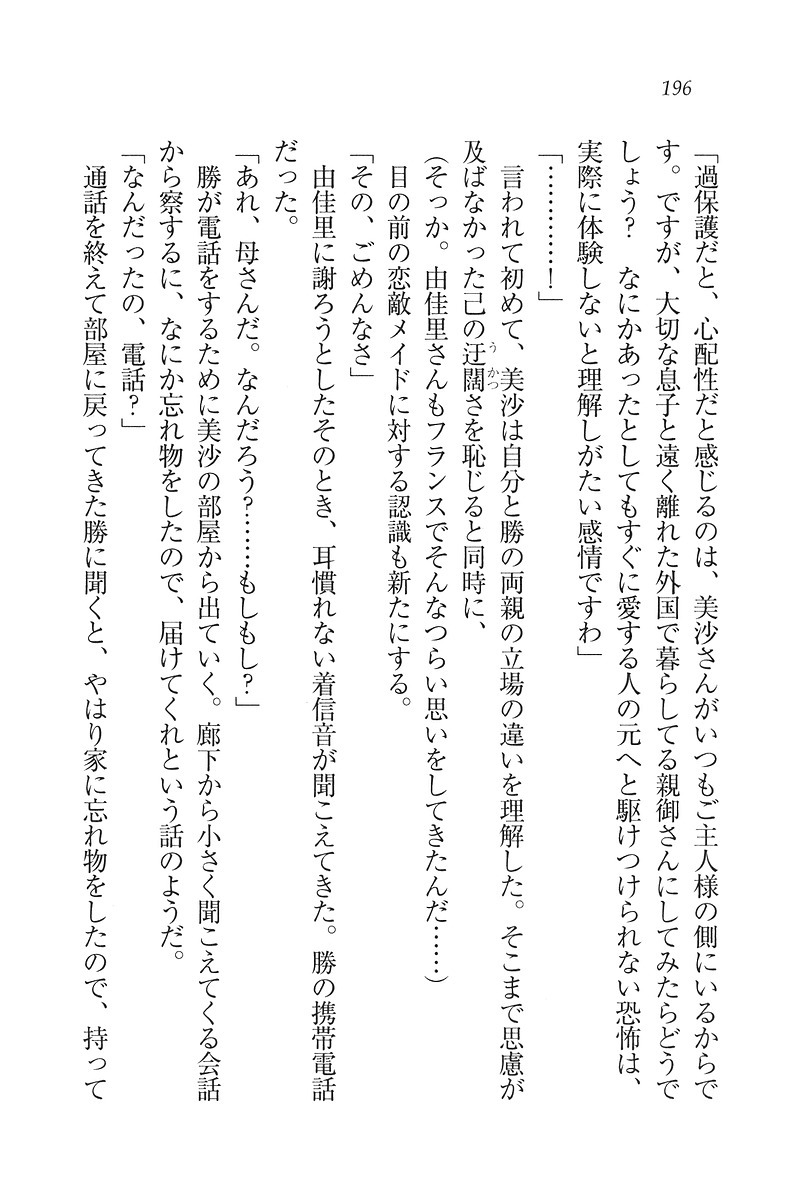 196
「過保護だと、心配性だと感じるのは、美沙さんがいつもご主人様の側にいるからで
す。ですが、大切な息子と遠く離れた外国で暮らしてる親御さんにしてみたらどうで
しょう？　なにかあったとしてもすぐに愛する人の元へと駆けつけられない恐怖は、
実際に体験しないと理解しがたい感情ですわ」
「…………！」
　言われて初めて、美沙は自分と勝の両親の立場の違いを理解した。そこまで思慮が
及ばなかった己の迂闊さを恥じると同時に、
うかつ
（そっか。由佳里さんもフランスでそんなつらい思いをしてきたんだ……）
　目の前の恋敵メイドに対する認識も新たにする。
「その、ごめんなさ」
　由佳里に謝ろうとしたそのとき、耳慣れない着信音が聞こえてきた。勝の携帯電話
だった。
「あれ、母さんだ。なんだろう？……もしもし？」
　勝が電話をするために美沙の部屋から出ていく。廊下から小さく聞こえてくる会話
から察するに、なにか忘れ物をしたので、届けてくれという話のようだ。
「なんだったの、電話？」
　通話を終えて部屋に戻ってきた勝に聞くと、やはり家に忘れ物をしたので、持って